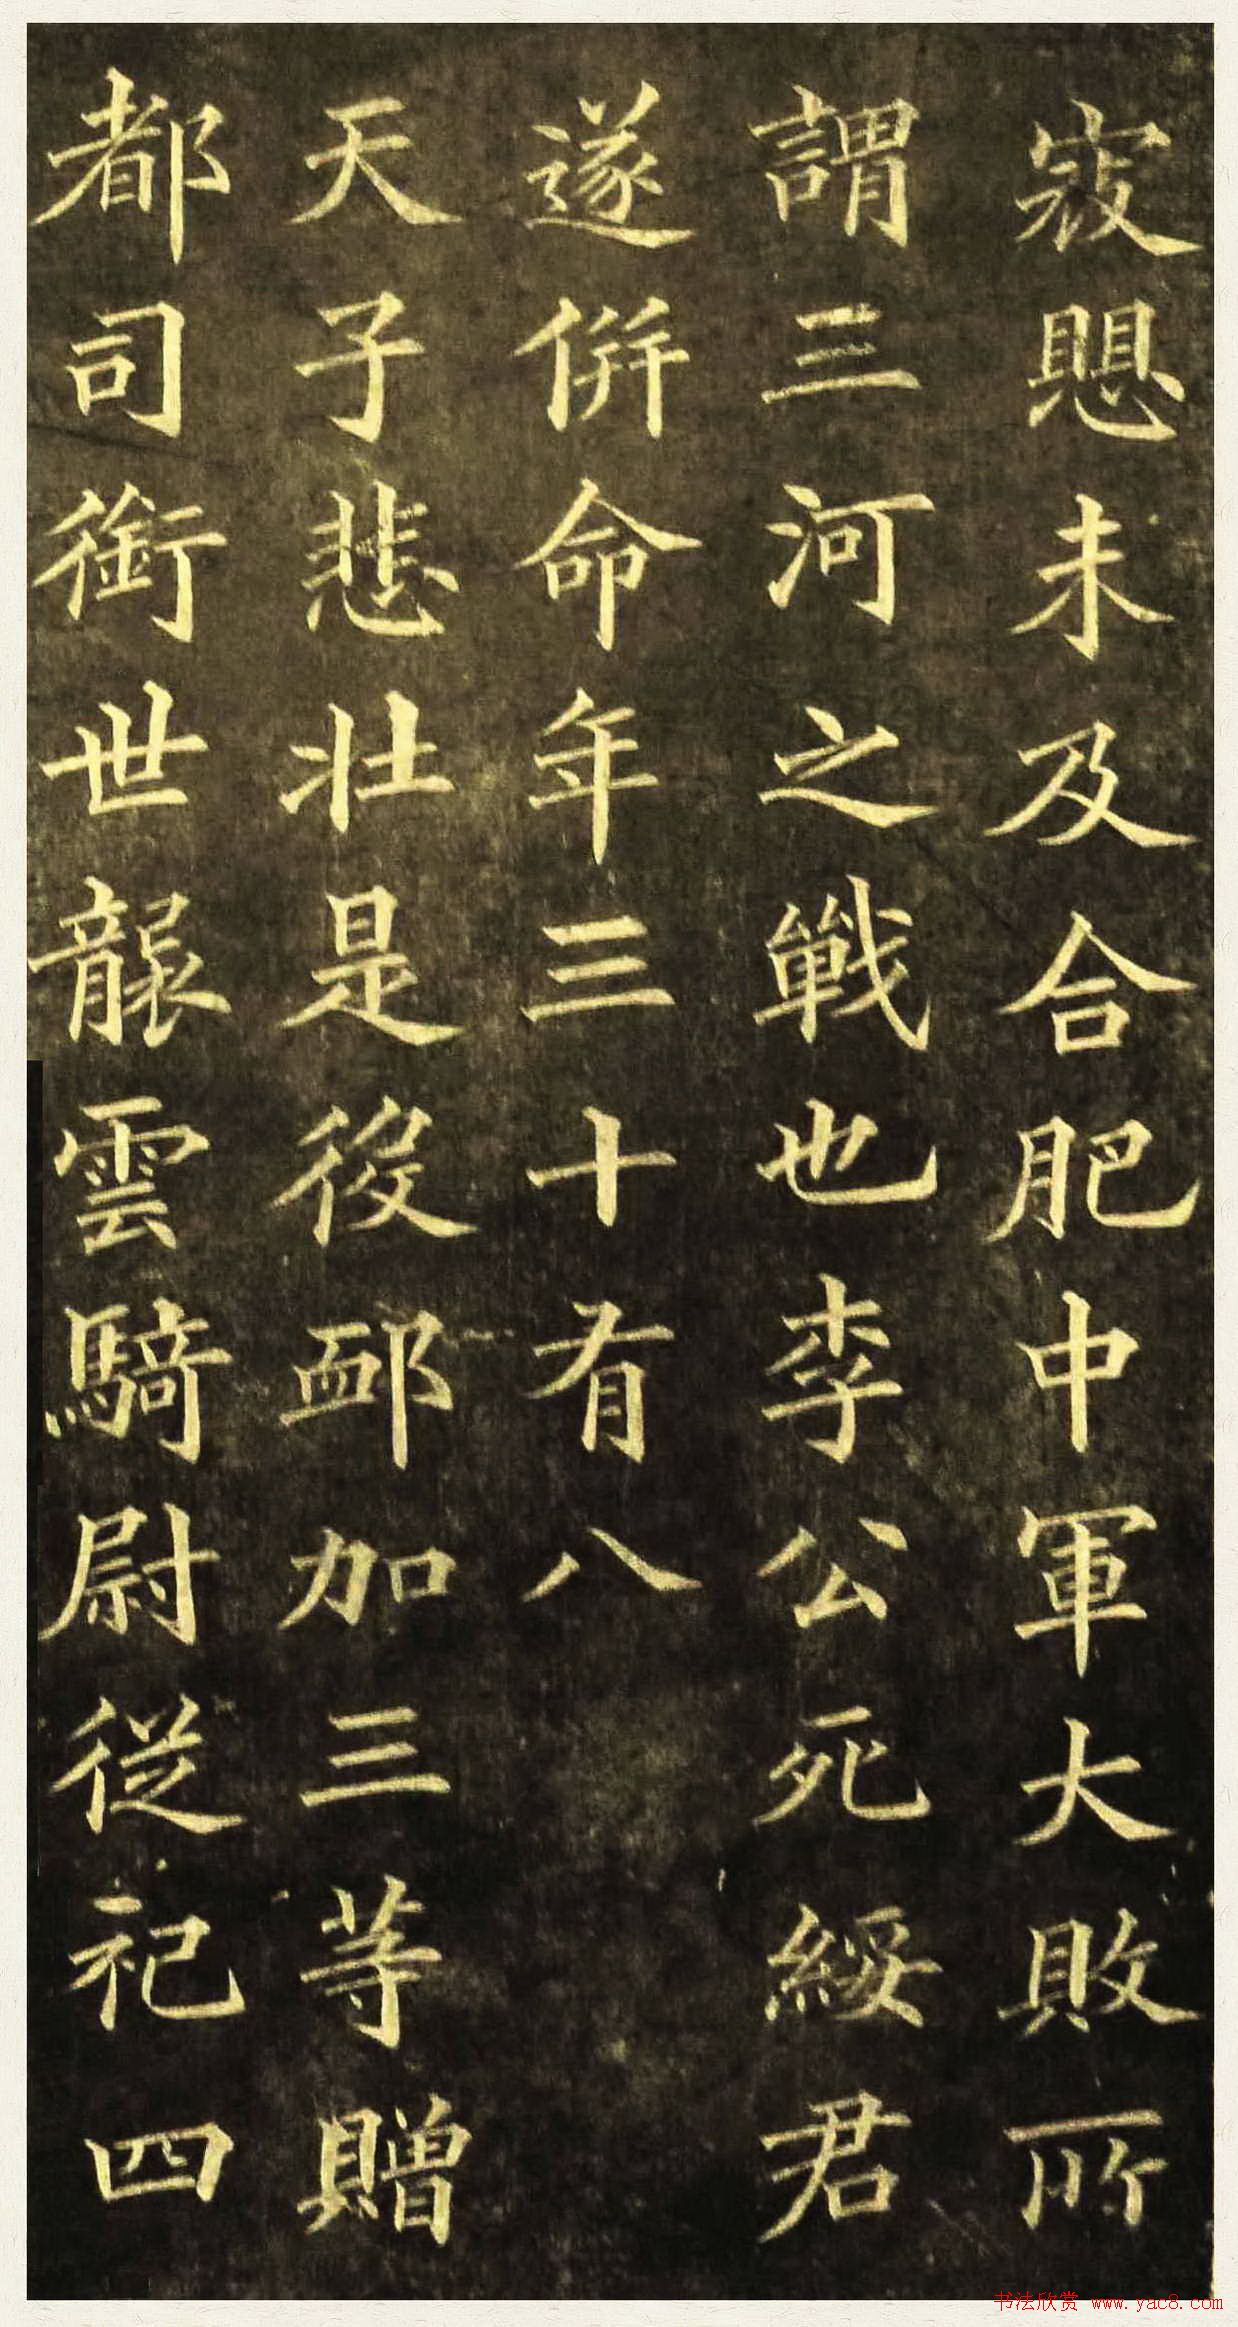 寇愳未及合肥中軍大敗所
謂三河之戰也李公死綏君
遂併命年三十有八
天子悲壯是役卹加三等贈
都司銜世襲雲騎尉從祀四
书法欣赏 www.yac8.com